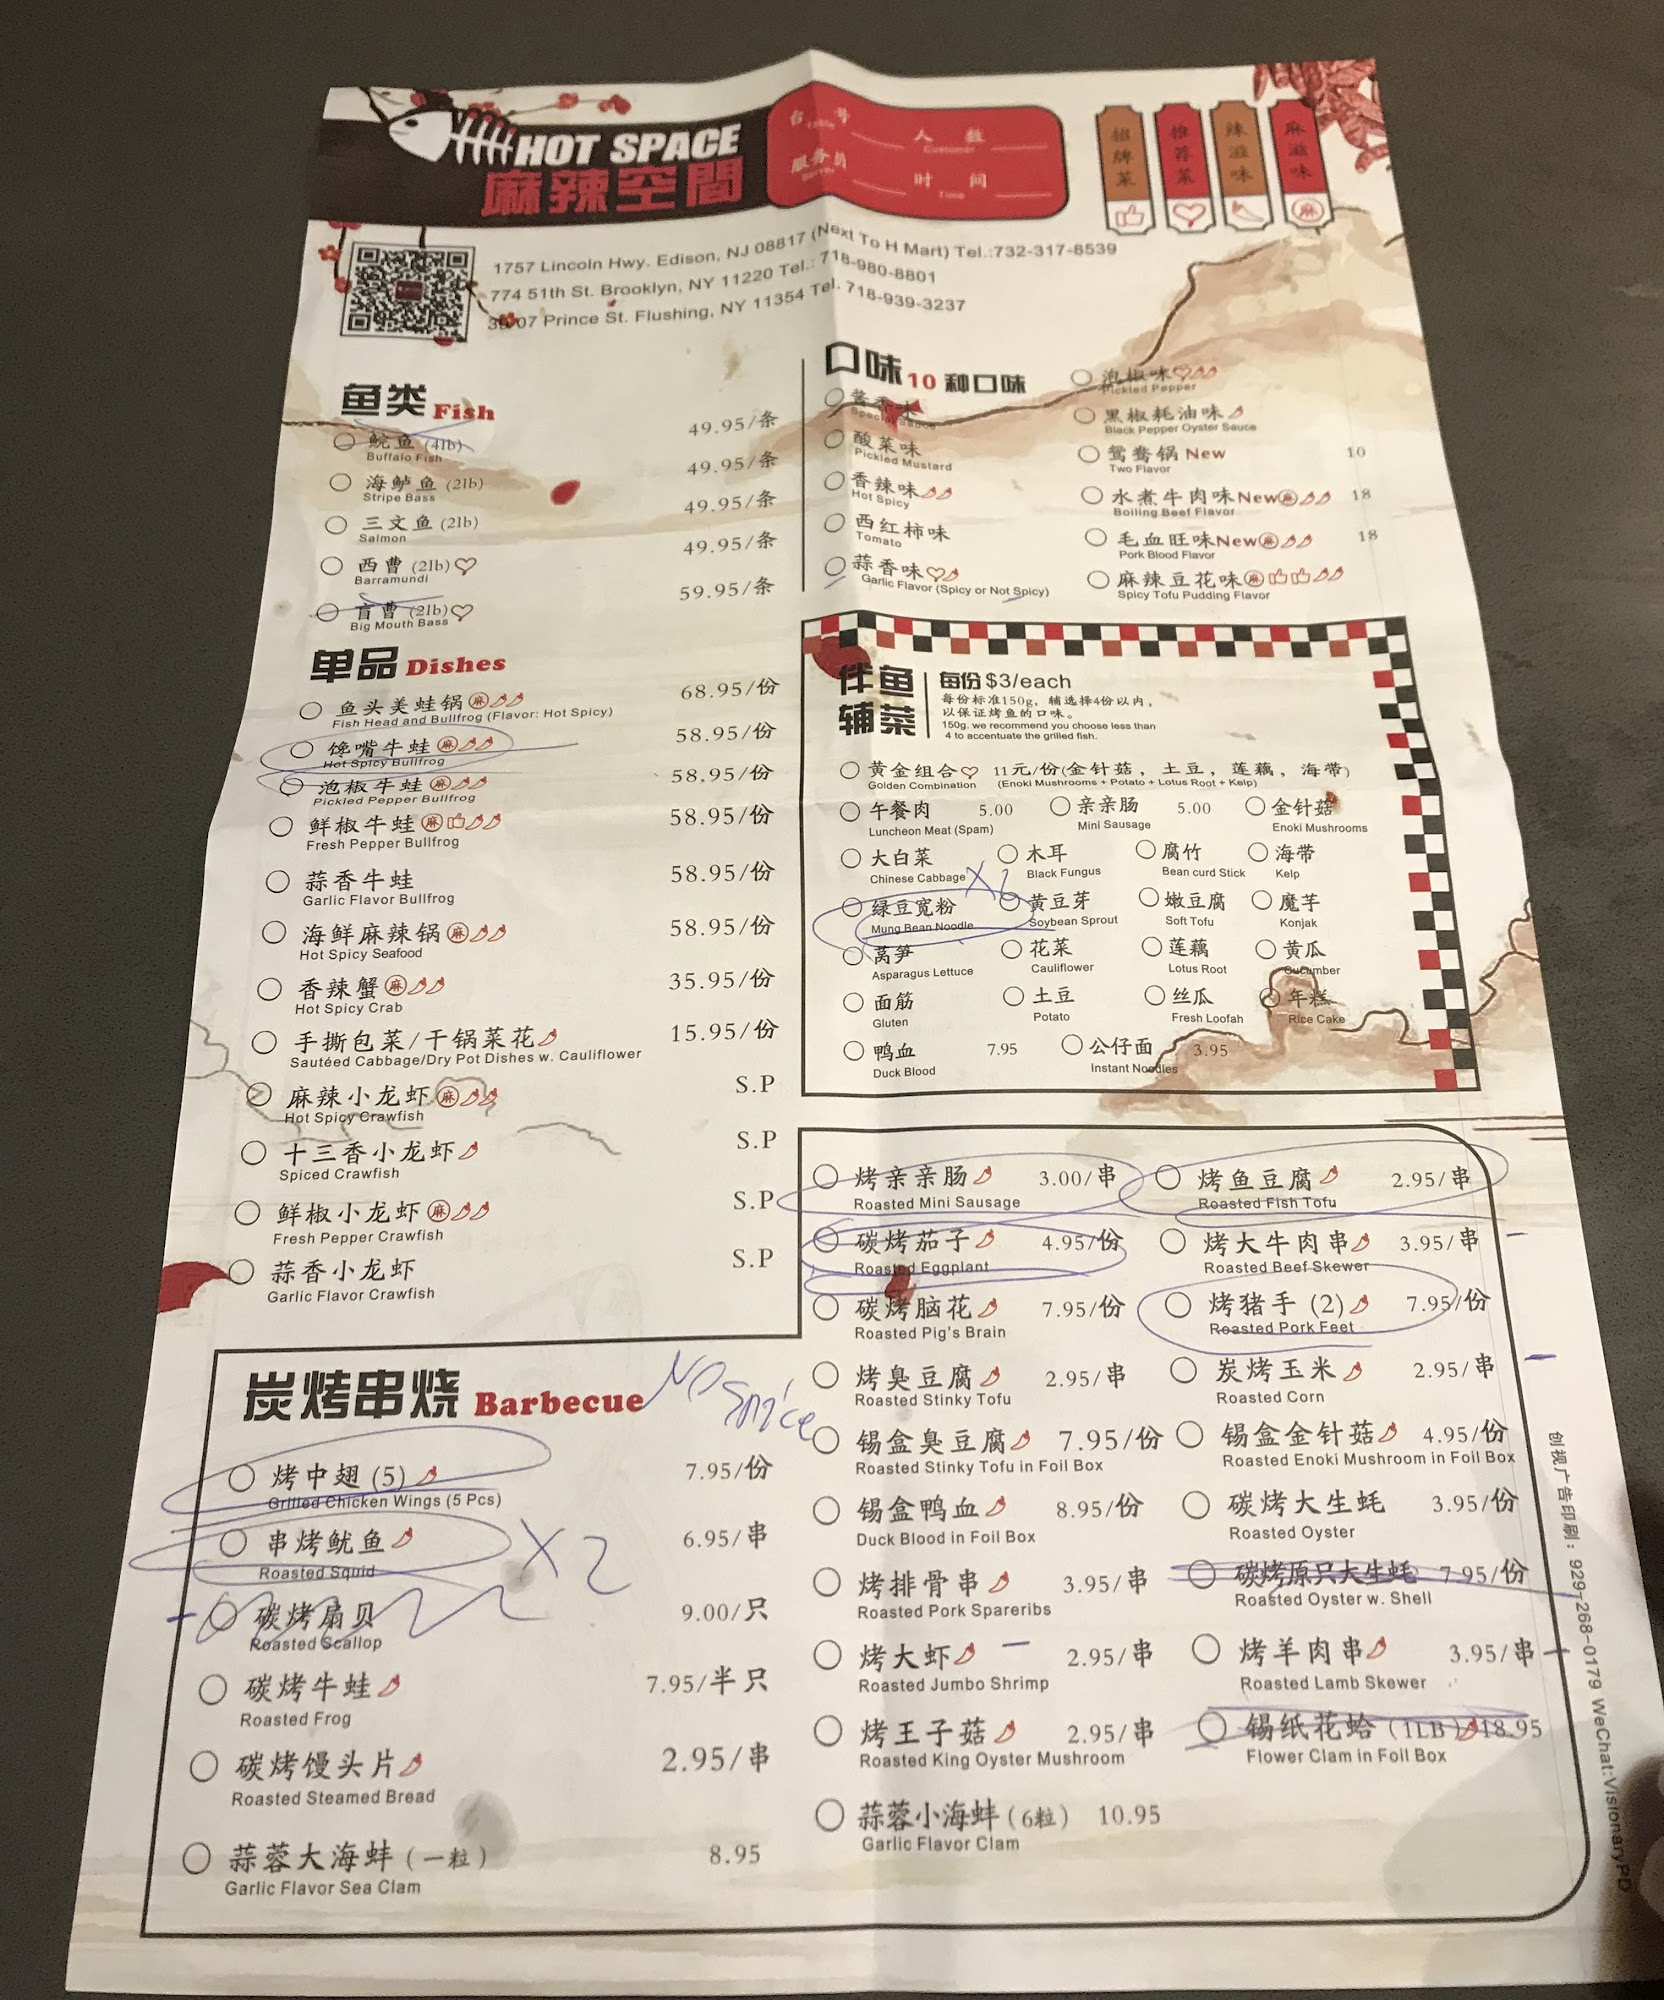 HOT SPACE
麻辣空間
台号 Table 人数 Customer
服务员 Server 时间 Time
招牌菜
推荐菜
辣滋味
麻滋味
麻
1757 Lincoln Hwy. Edison, NJ 08817 (Next To H Mart) Tel.:732-317-8539
774 51th St. Brooklyn, NY 11220 Tel.: 718-980-8801
07 Prince St. Flushing, NY 11354 Tel. 718-939-3237
鱼类 Fish
鲩鱼 (4lb) 49.95/条
Buffalo Fish
海鲈鱼 (2lb) 49.95/条
Stripe Bass
三文鱼 (2lb) 49.95/条
Salmon
西曹 (2lb) 49.95/条
Barramundi
盲曹 (2lb) 59.95/条
Big Mouth Bass
口味 10 种口味
酱香味
Special Sauce
酸菜味
Pickled Mustard
香辣味
Hot Spicy
西红柿味
Tomato
蒜香味
Garlic Flavor (Spicy or Not Spicy)
泡椒味
Pickled Pepper
黑椒耗油味
Black Pepper Oyster Sauce
鸳鸯锅 New 10
Two Flavor
水煮牛肉味New麻 18
Boiling Beef Flavor
毛血旺味New麻 18
Pork Blood Flavor
麻辣豆花味麻
Spicy Tofu Pudding Flavor
单品 Dishes
鱼头美蛙锅麻 68.95/份
Fish Head and Bullfrog (Flavor: Hot Spicy)
馋嘴牛蛙麻 58.95/份
Hot Spicy Bullfrog
泡椒牛蛙麻 58.95/份
Pickled Pepper Bullfrog
鲜椒牛蛙麻 58.95/份
Fresh Pepper Bullfrog
蒜香牛蛙 58.95/份
Garlic Flavor Bullfrog
海鲜麻辣锅麻 58.95/份
Hot Spicy Seafood
香辣蟹麻 35.95/份
Hot Spicy Crab
手撕包菜/干锅菜花 15.95/份
Sautéed Cabbage/Dry Pot Dishes w. Cauliflower
麻辣小龙虾麻 S.P
Hot Spicy Crawfish
十三香小龙虾 S.P
Spiced Crawfish
鲜椒小龙虾麻 S.P
Fresh Pepper Crawfish
蒜香小龙虾 S.P
Garlic Flavor Crawfish
伴鱼辅菜
每份 $3/each
每份标准150g, 辅选择4份以内,
以保证烤鱼的口味。
150g. we recommend you choose less than
4 to accentuate the grilled fish.
黄金组合 11元/份(金针菇, 土豆, 莲藕, 海带)
Golden Combination (Enoki Mushrooms + Potato + Lotus Root + Kelp)
午餐肉 5.00 亲亲肠 5.00 金针菇
Luncheon Meat (Spam) Mini Sausage Enoki Mushrooms
大白菜 木耳 腐竹 海带
Chinese Cabbage Black Fungus Bean curd Stick Kelp
X2
绿豆宽粉 黄豆芽 嫩豆腐 魔芋
Mung Bean Noodle Soybean Sprout Soft Tofu Konjak
莴笋 花菜 莲藕 黄瓜
Asparagus Lettuce Cauliflower Lotus Root Cucumber
面筋 土豆 丝瓜 年糕
Gluten Potato Fresh Loofah Rice Cake
鸭血 7.95 公仔面 3.95
Duck Blood Instant Noodles
炭烤串烧 Barbecue
NO Spice
烤中翅 (5) 7.95/份
Grilled Chicken Wings (5 Pcs)
串烤鱿鱼 6.95/串
Roasted Squid
X2
碳烤扇贝 9.00/只
Roasted Scallop
碳烤牛蛙 7.95/半只
Roasted Frog
碳烤馒头片 2.95/串
Roasted Steamed Bread
蒜蓉大海蚌 (一粒) 8.95
Garlic Flavor Sea Clam
烤亲亲肠 3.00/串
Roasted Mini Sausage
碳烤茄子 4.95/份
Roasted Eggplant
碳烤脑花 7.95/份
Roasted Pig's Brain
烤臭豆腐 2.95/串
Roasted Stinky Tofu
锡盒臭豆腐 7.95/份
Roasted Stinky Tofu in Foil Box
锡盒鸭血 8.95/份
Duck Blood in Foil Box
烤排骨串 3.95/串
Roasted Pork Spareribs
烤大虾 2.95/串
Roasted Jumbo Shrimp
烤王子菇 2.95/串
Roasted King Oyster Mushroom
蒜蓉小海蚌 (6粒) 10.95
Garlic Flavor Clam
烤鱼豆腐 2.95/串
Roasted Fish Tofu
烤大牛肉串 3.95/串
Roasted Beef Skewer
烤猪手 (2) 7.95/份
Roasted Pork Feet
炭烤玉米 2.95/串
Roasted Corn
锡盒金针菇 4.95/份
Roasted Enoki Mushroom in Foil Box
碳烤大生蚝 3.95/份
Roasted Oyster
碳烤原只大生蚝 7.95/份
Roasted Oyster w. Shell
烤羊肉串 3.95/串
Roasted Lamb Skewer
锡纸花蛤 (1LB) 18.95
Flower Clam in Foil Box
创视广告印刷: 929-268-0179 WeChat:VisionaryPD